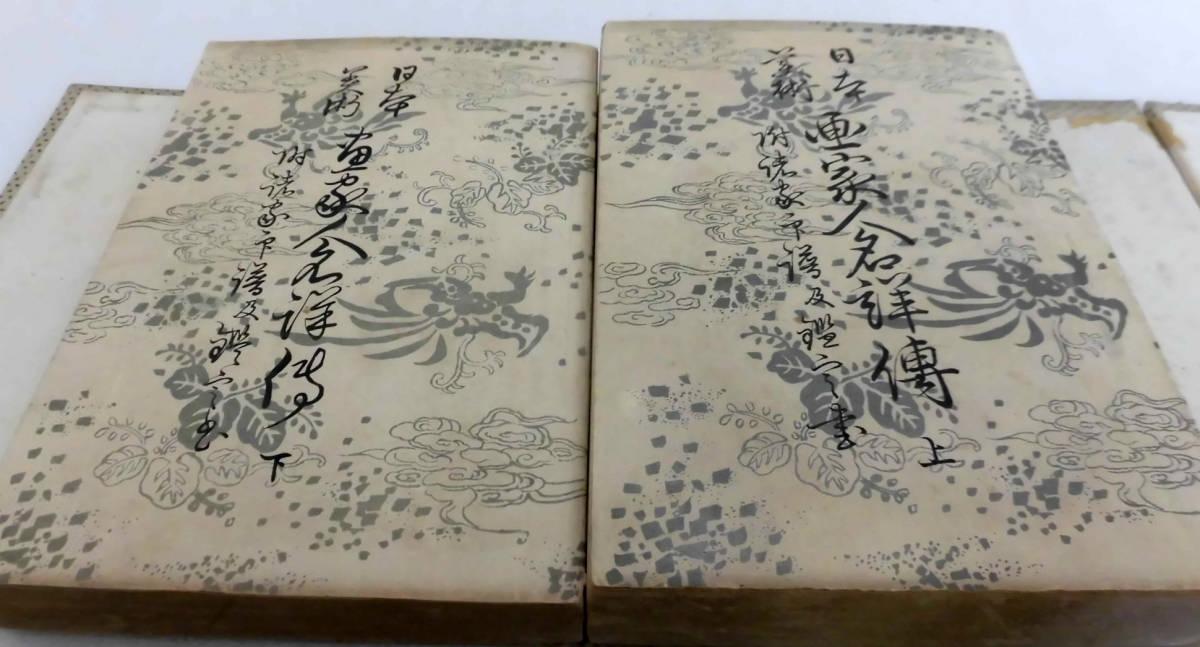 日本
美術
画家人名詳傳 上
附諸家印譜及鑑定書
日本
美術
畫家人名詳傳 下
附諸家印譜及鑑定書